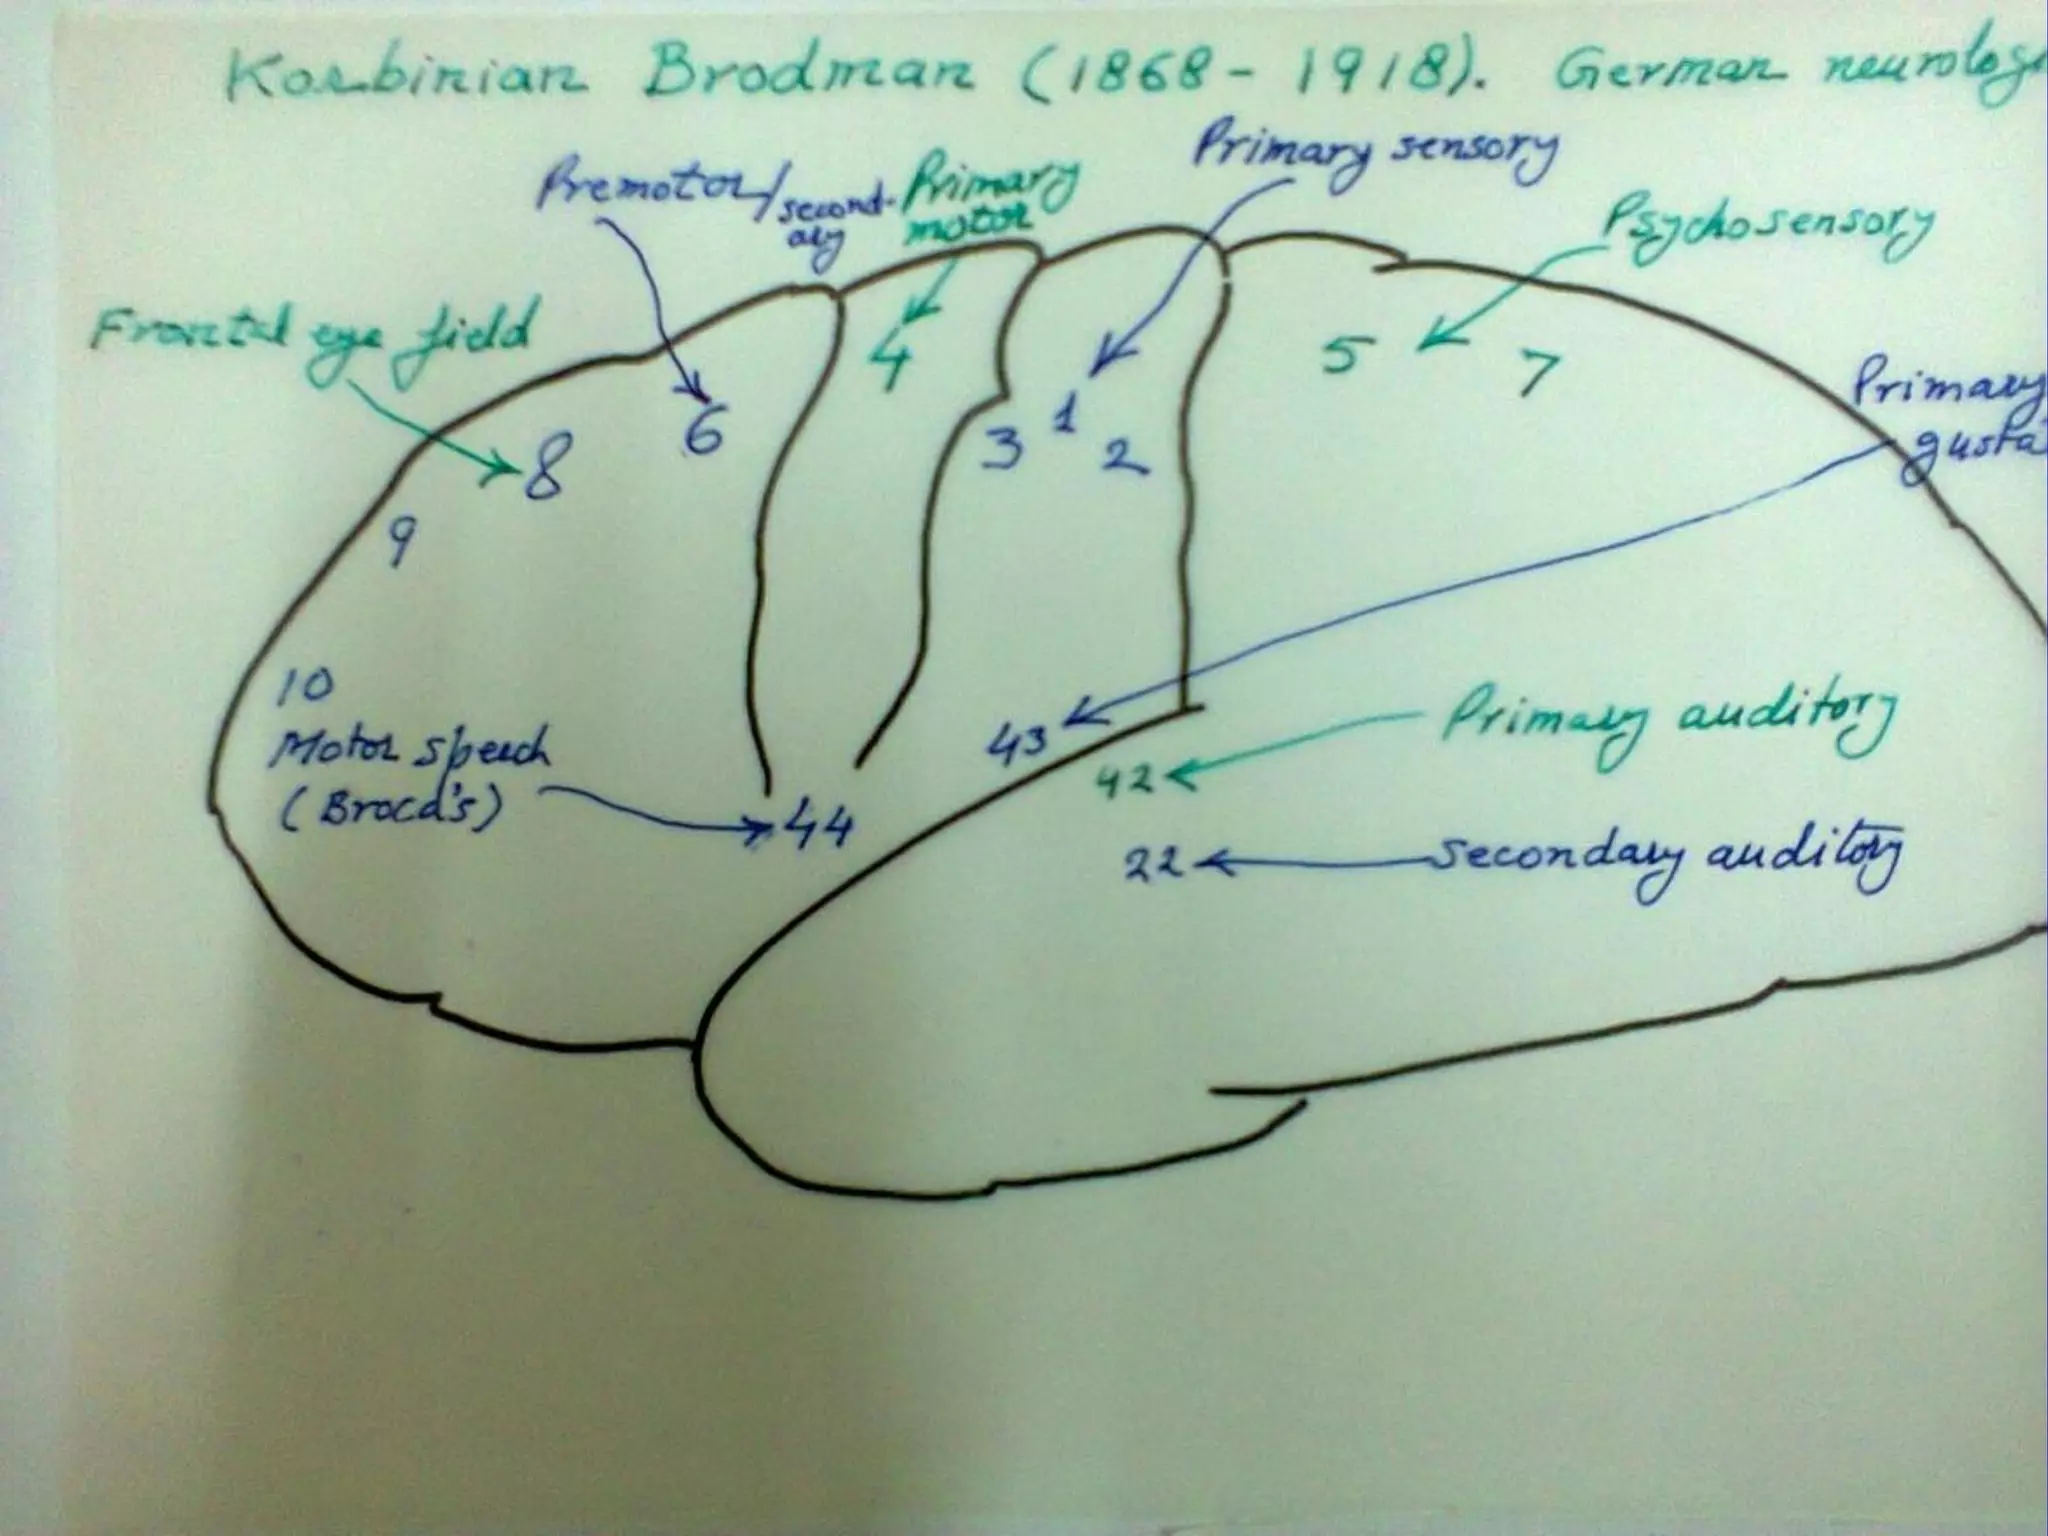 Korbinian Brodman (1868 - 1918). German neurolog
Primary sensory
Premotor/second-
ary
Primary
motor
Psychosensory
Frontal eye field
4
5
7
Primary
gusta
6
3 1 2
8
9
10
Motor speech
(Broca's)
44
43
Primary auditory
42
22
Secondary auditory